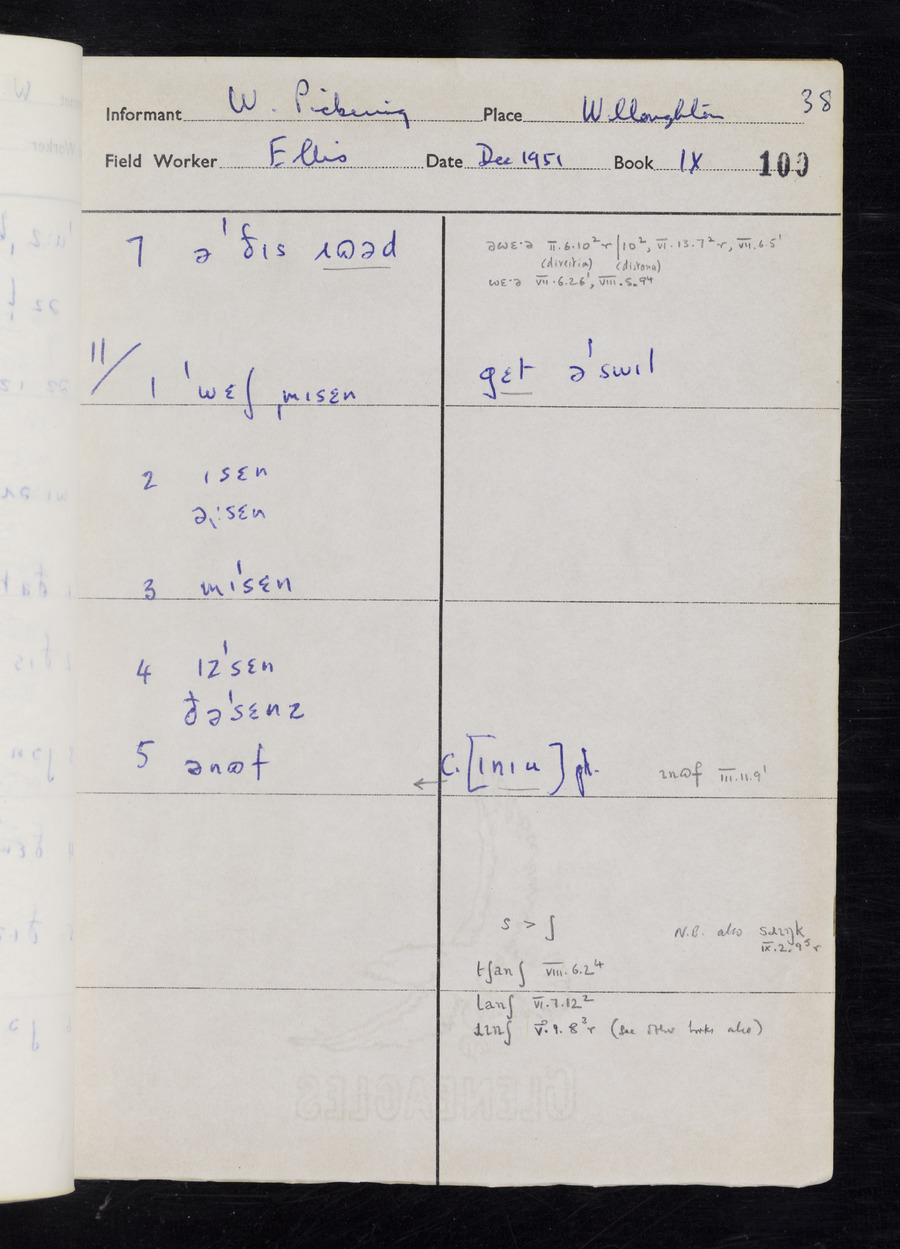 38
Informant W. Pickering Place Willoughton
Field Worker Ellis Date Dec 1951 Book IX 100
7 ə'ðɪs ɹɷəd
əwɛ·ə II.6.10² r | 10², VI.13.7² r, VII.6.5¹
wɛ·ə VII.6.26¹, VIII.5.9⁴
11/
1 'wɛʃ mɪsɛn
gɛt ə'swɪl
2 ɪsɛn
əɪ'sɛn
3 mɪ'sɛn
4 ɪz'sɛn
ðə'sɛnz
5 ənɷf
C. [ɪnɪu] pl. ɪnɷf III.11.9¹
←
s > ʃ
N.B. also
IX.2.9⁵ r
tʃanʃ VIII.6.2⁴
lanʃ VI.7.12²
ɹɪnʃ V.9.8³ r (see other books also)
GLENEAGLES